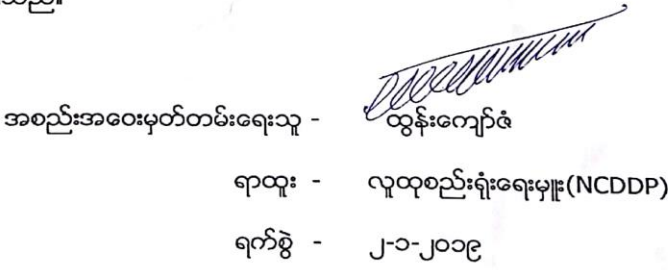 အစည်းအဝေးမှတ်တမ်းရေးသူ - ထွန်းကျော်ဇံ
ရာထူး - လူထုစည်းရုံးရေးမှူး(NCDDP)
ရက်စွဲ - ၂-၁-၂၀၁၉